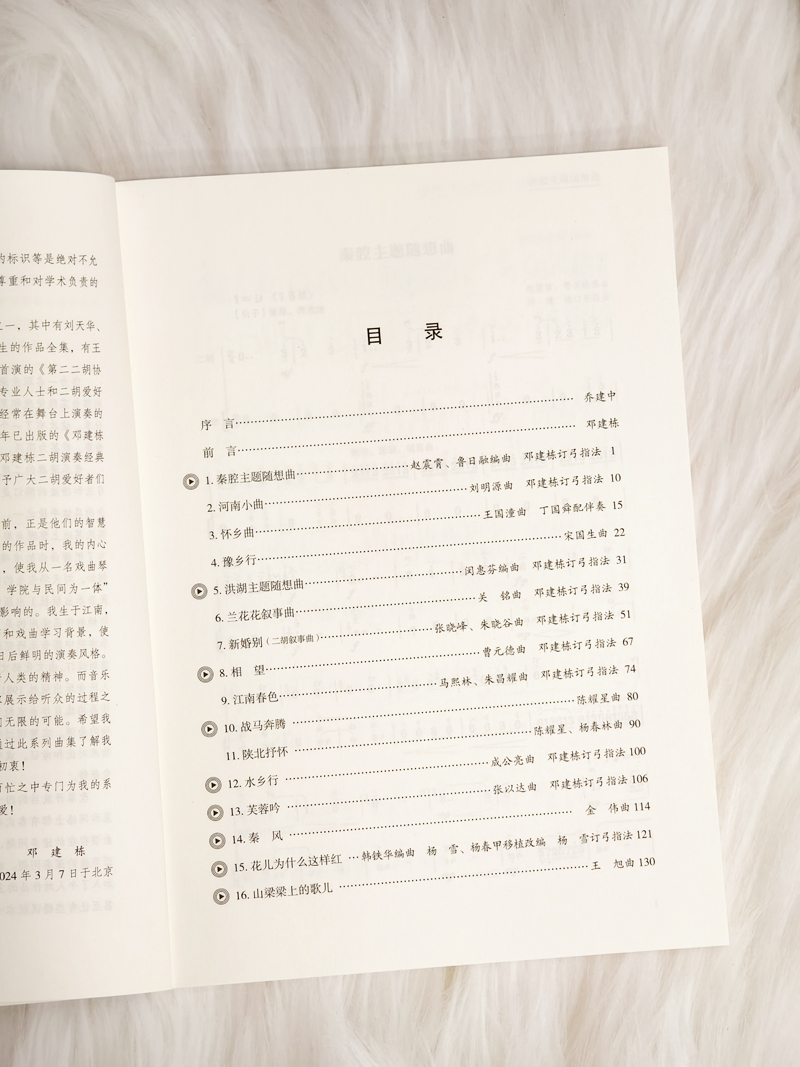 的标识等是绝对不允
尊重和对学术负责的
一，其中有刘天华、
生的作品全集，有王
首演的《第二二胡协
专业人士和二胡爱好
经常在舞台上演奏的
年已出版的《邓建栋
邓建栋二胡演奏经典
予广大二胡爱好者们
前，正是他们的智慧
的作品时，我的内心
，使我从一名戏曲琴
学院与民间为一体”
影响的。我生于江南，
和戏曲学习背景，使
日后鲜明的演奏风格。
人类的精神。而音乐
展示给听众的过程之
无限的可能。希望我
通过此系列曲集了解我
初衷！
百忙之中专门为我的系
爱！
邓 建 栋
2024 年 3 月 7 日于北京
目 录
序 言 …… 乔建中
前 言 …… 邓建栋
1. 秦腔主题随想曲 …… 赵震霄、鲁日融编曲 邓建栋订弓指法 1
2. 河南小曲 …… 刘明源曲 邓建栋订弓指法 10
3. 怀乡曲 …… 王国潼曲 丁国舜配伴奏 15
4. 豫乡行 …… 宋国生曲 22
5. 洪湖主题随想曲 …… 闵惠芬编曲 邓建栋订弓指法 31
6. 兰花花叙事曲 …… 关 铭曲 邓建栋订弓指法 39
7. 新婚别（二胡叙事曲） …… 张晓峰、朱晓谷曲 邓建栋订弓指法 51
8. 相 望 …… 曹元德曲 邓建栋订弓指法 67
9. 江南春色 …… 马熙林、朱昌耀曲 邓建栋订弓指法 74
10. 战马奔腾 …… 陈耀星曲 80
11. 陕北抒怀 …… 陈耀星、杨春林曲 90
12. 水乡行 …… 成公亮曲 邓建栋订弓指法 100
13. 芙蓉吟 …… 张以达曲 邓建栋订弓指法 106
14. 秦 风 …… 金 伟曲 114
15. 花儿为什么这样红 …… 韩铁华编曲 杨 雪、杨春甲移植改编 杨 雪订弓指法 121
16. 山梁梁上的歌儿 …… 王 旭曲 130